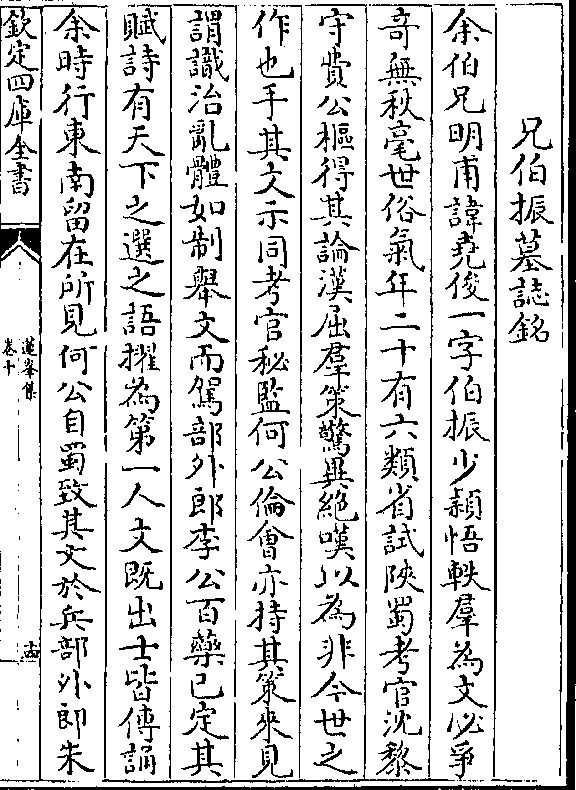 兄伯振墓誌銘
余伯兄明甫諱堯俊一字伯振少穎悟軼羣為文必爭
竒無秋毫世俗氣年二十有六類省試陝蜀考官沈黎
守費公樞得其論漢屈羣策驚異絶嘆以為非今世之
作也手其文示同考官秘監何公倫會亦持其策來見
謂識治亂體如制舉文而駕部外郎李公百藥已定其
賦詩有天下之選之語擢為第一人文既出士皆傳誦
余時行東南留在所見何公自蜀致其文於兵部外郎朱
欽定四庫全書
蓮峯集
卷十
十四